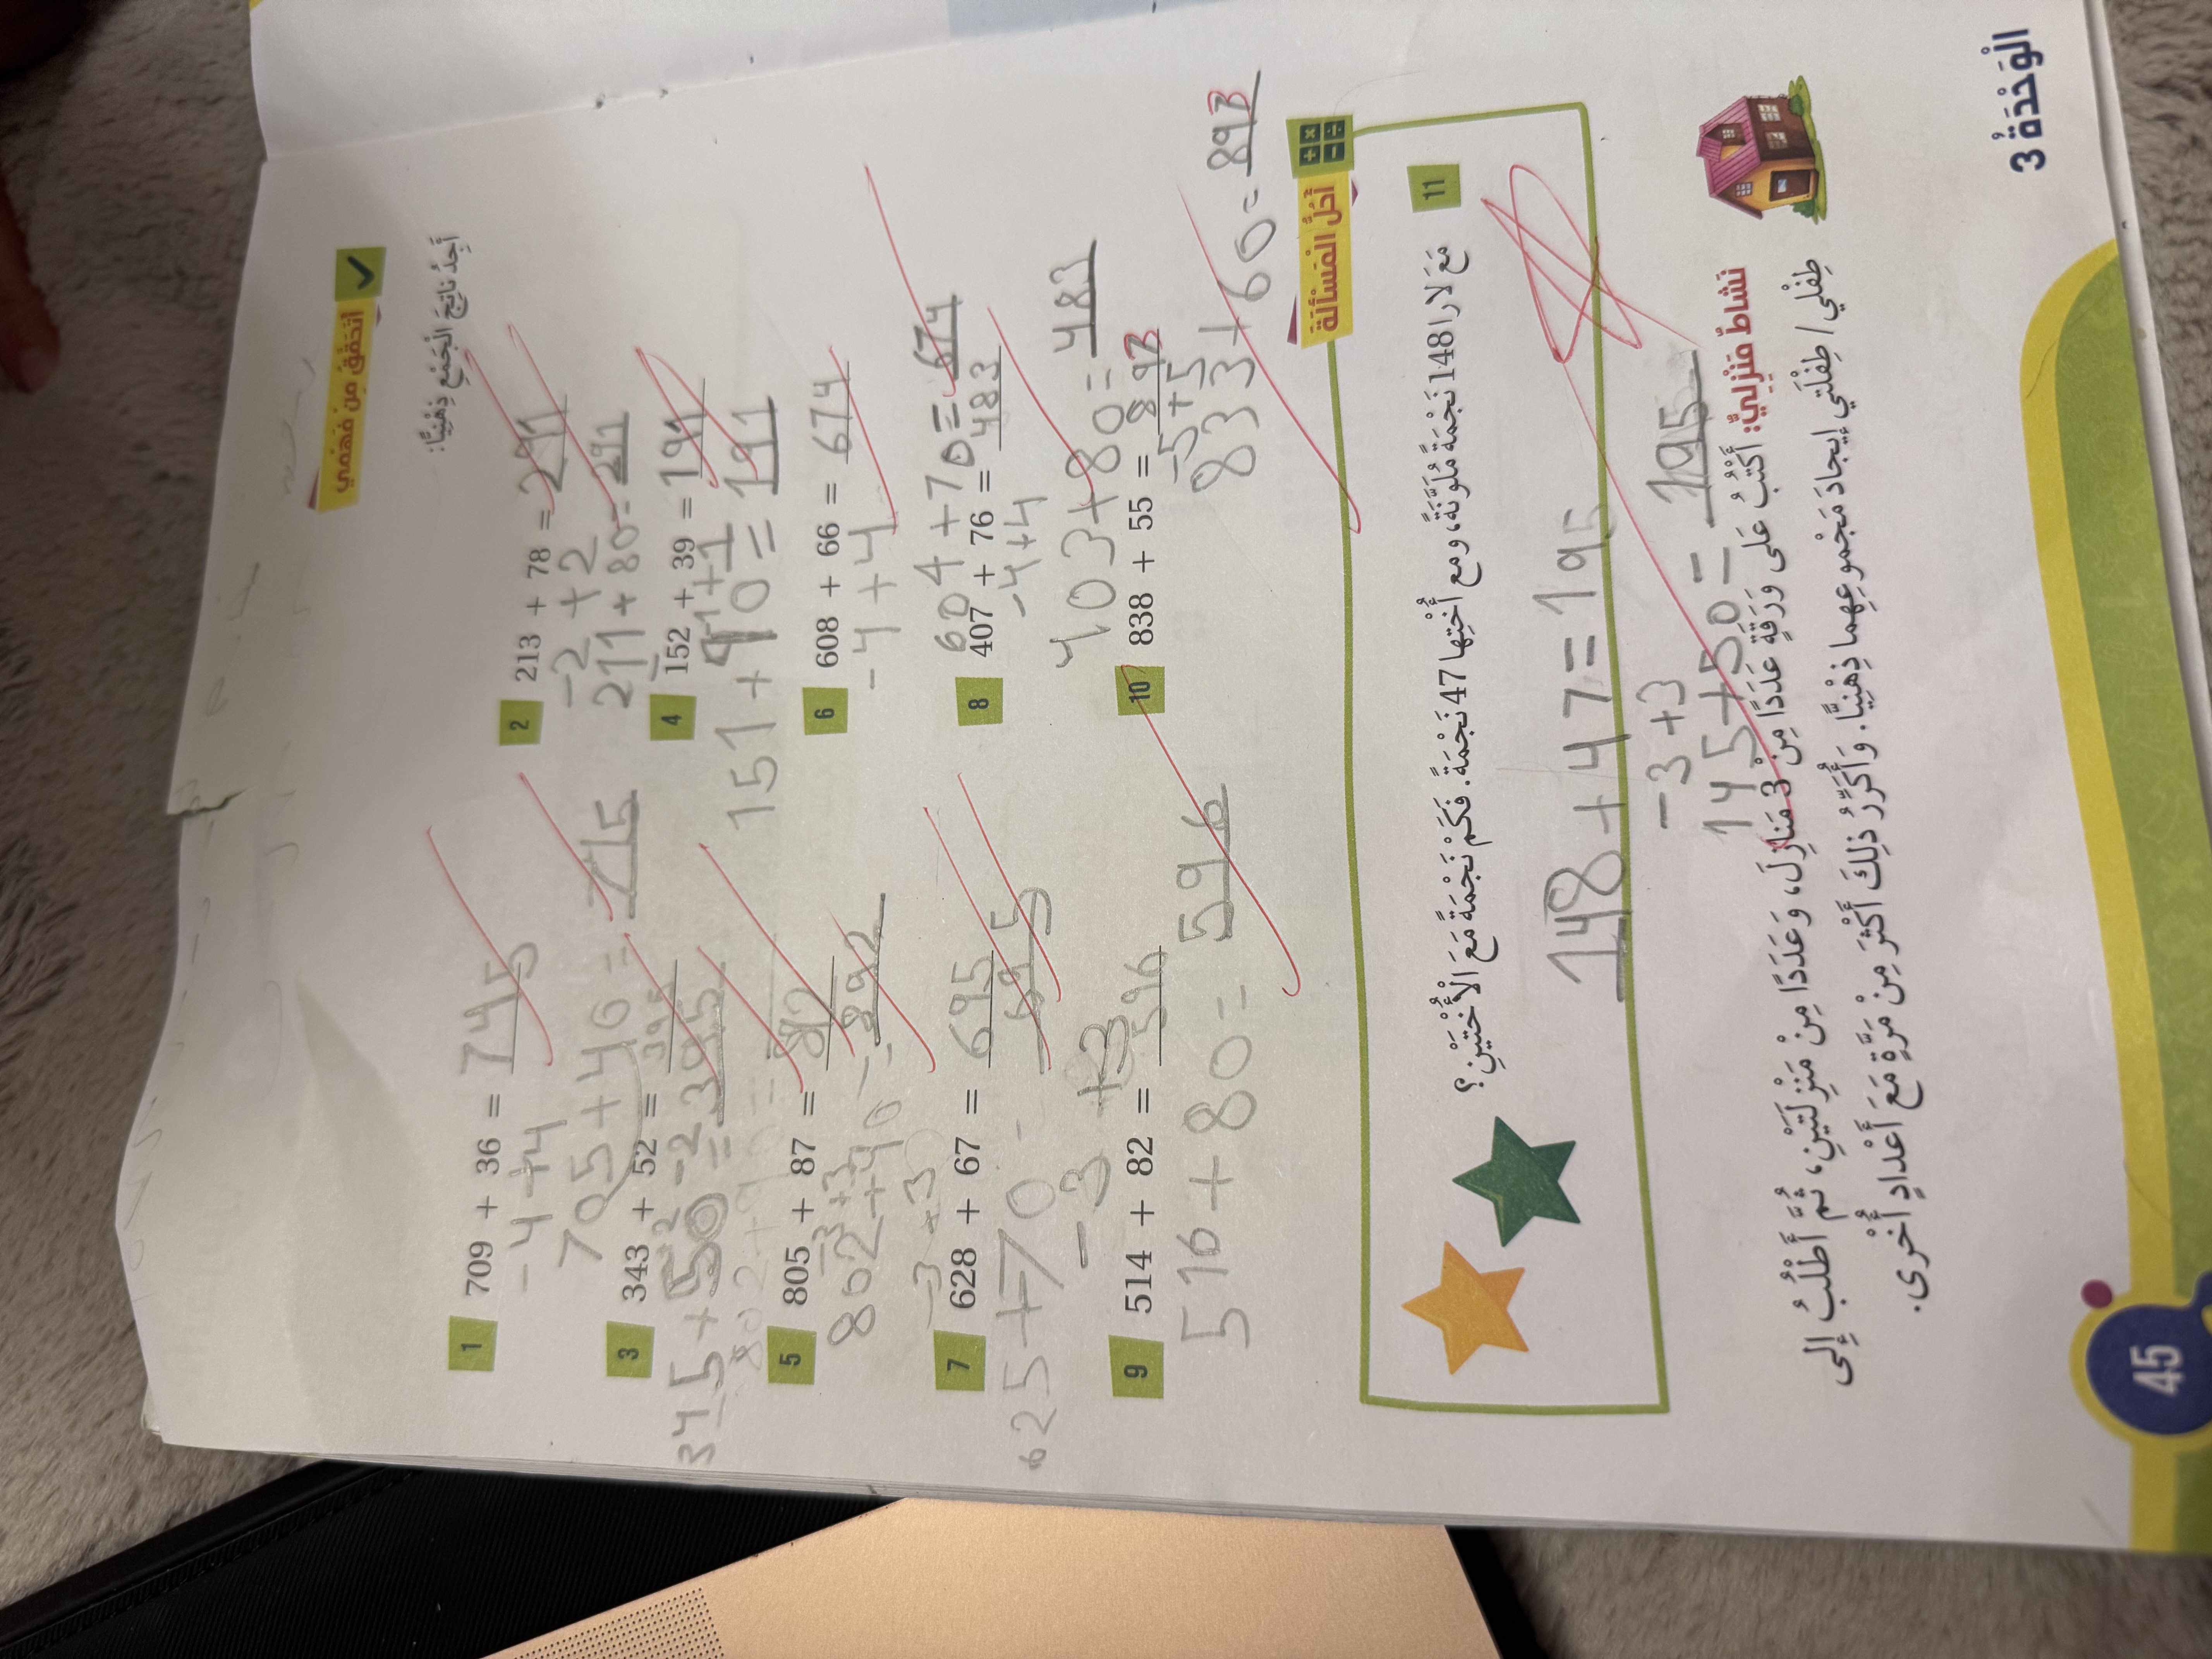 أَتَحَقَّقُ مِنْ فَهْمي
أَجِدُ ناتِجَ الْجَمْعِ ذِهْنِيًّا:
1 709 + 36 = 745
- 4 + 4
705 + 40 = 745
2 213 + 78 = 291
- 2 + 2
211 + 80 = 291
3 343 + 52 = 395
+ 2 - 2
345 + 50 = 395
4 152 + 39 = 191
- 1 + 1
151 + 40 = 191
5 805 + 87 = 892
- 3 + 3
802 + 90 = 892
6 608 + 66 = 674
- 4 + 4
604 + 70 = 674
- 3 + 3
7 628 + 67 = 695
625 + 70 = 695
- 3 + 3
8 407 + 76 = 483
- 4 + 4
403 + 80 = 483
9 514 + 82 = 596
516 + 80 = 596
10 838 + 55 = 893
- 5 + 5
833 + 60 = 893
أَحُلُّ الْمَسْأَلَةَ
11 مَعَ لارا 148 نَجْمَةً مُلَوَّنَةً، ومع أُخْتِها 47 نَجْمَةً. فَكَمْ نَجْمَةً مَعَ الْأُخْتَيْنِ؟
148 + 47 = 195
- 3 + 3
145 + 50 = 195
نَشاطٌ مَنْزِلِيٌّ: أَكْتُبُ عَلى وَرَقَةٍ عَدَدًا مِنْ 3 مَنازِلَ، وَعَدَدًا مِنْ مَنْزِلَتَيْنِ، ثُمَّ أَطْلُبُ إِلى
طِفْلي / طِفْلَتي إيجادَ مَجْموعِهِما ذِهْنِيًّا. وَأُكَرِّرُ ذلِكَ أَكْثَرَ مِنْ مَرَّةٍ مَعَ أَعْدادٍ أُخْرى.
الْوَحْدَةُ 3
45